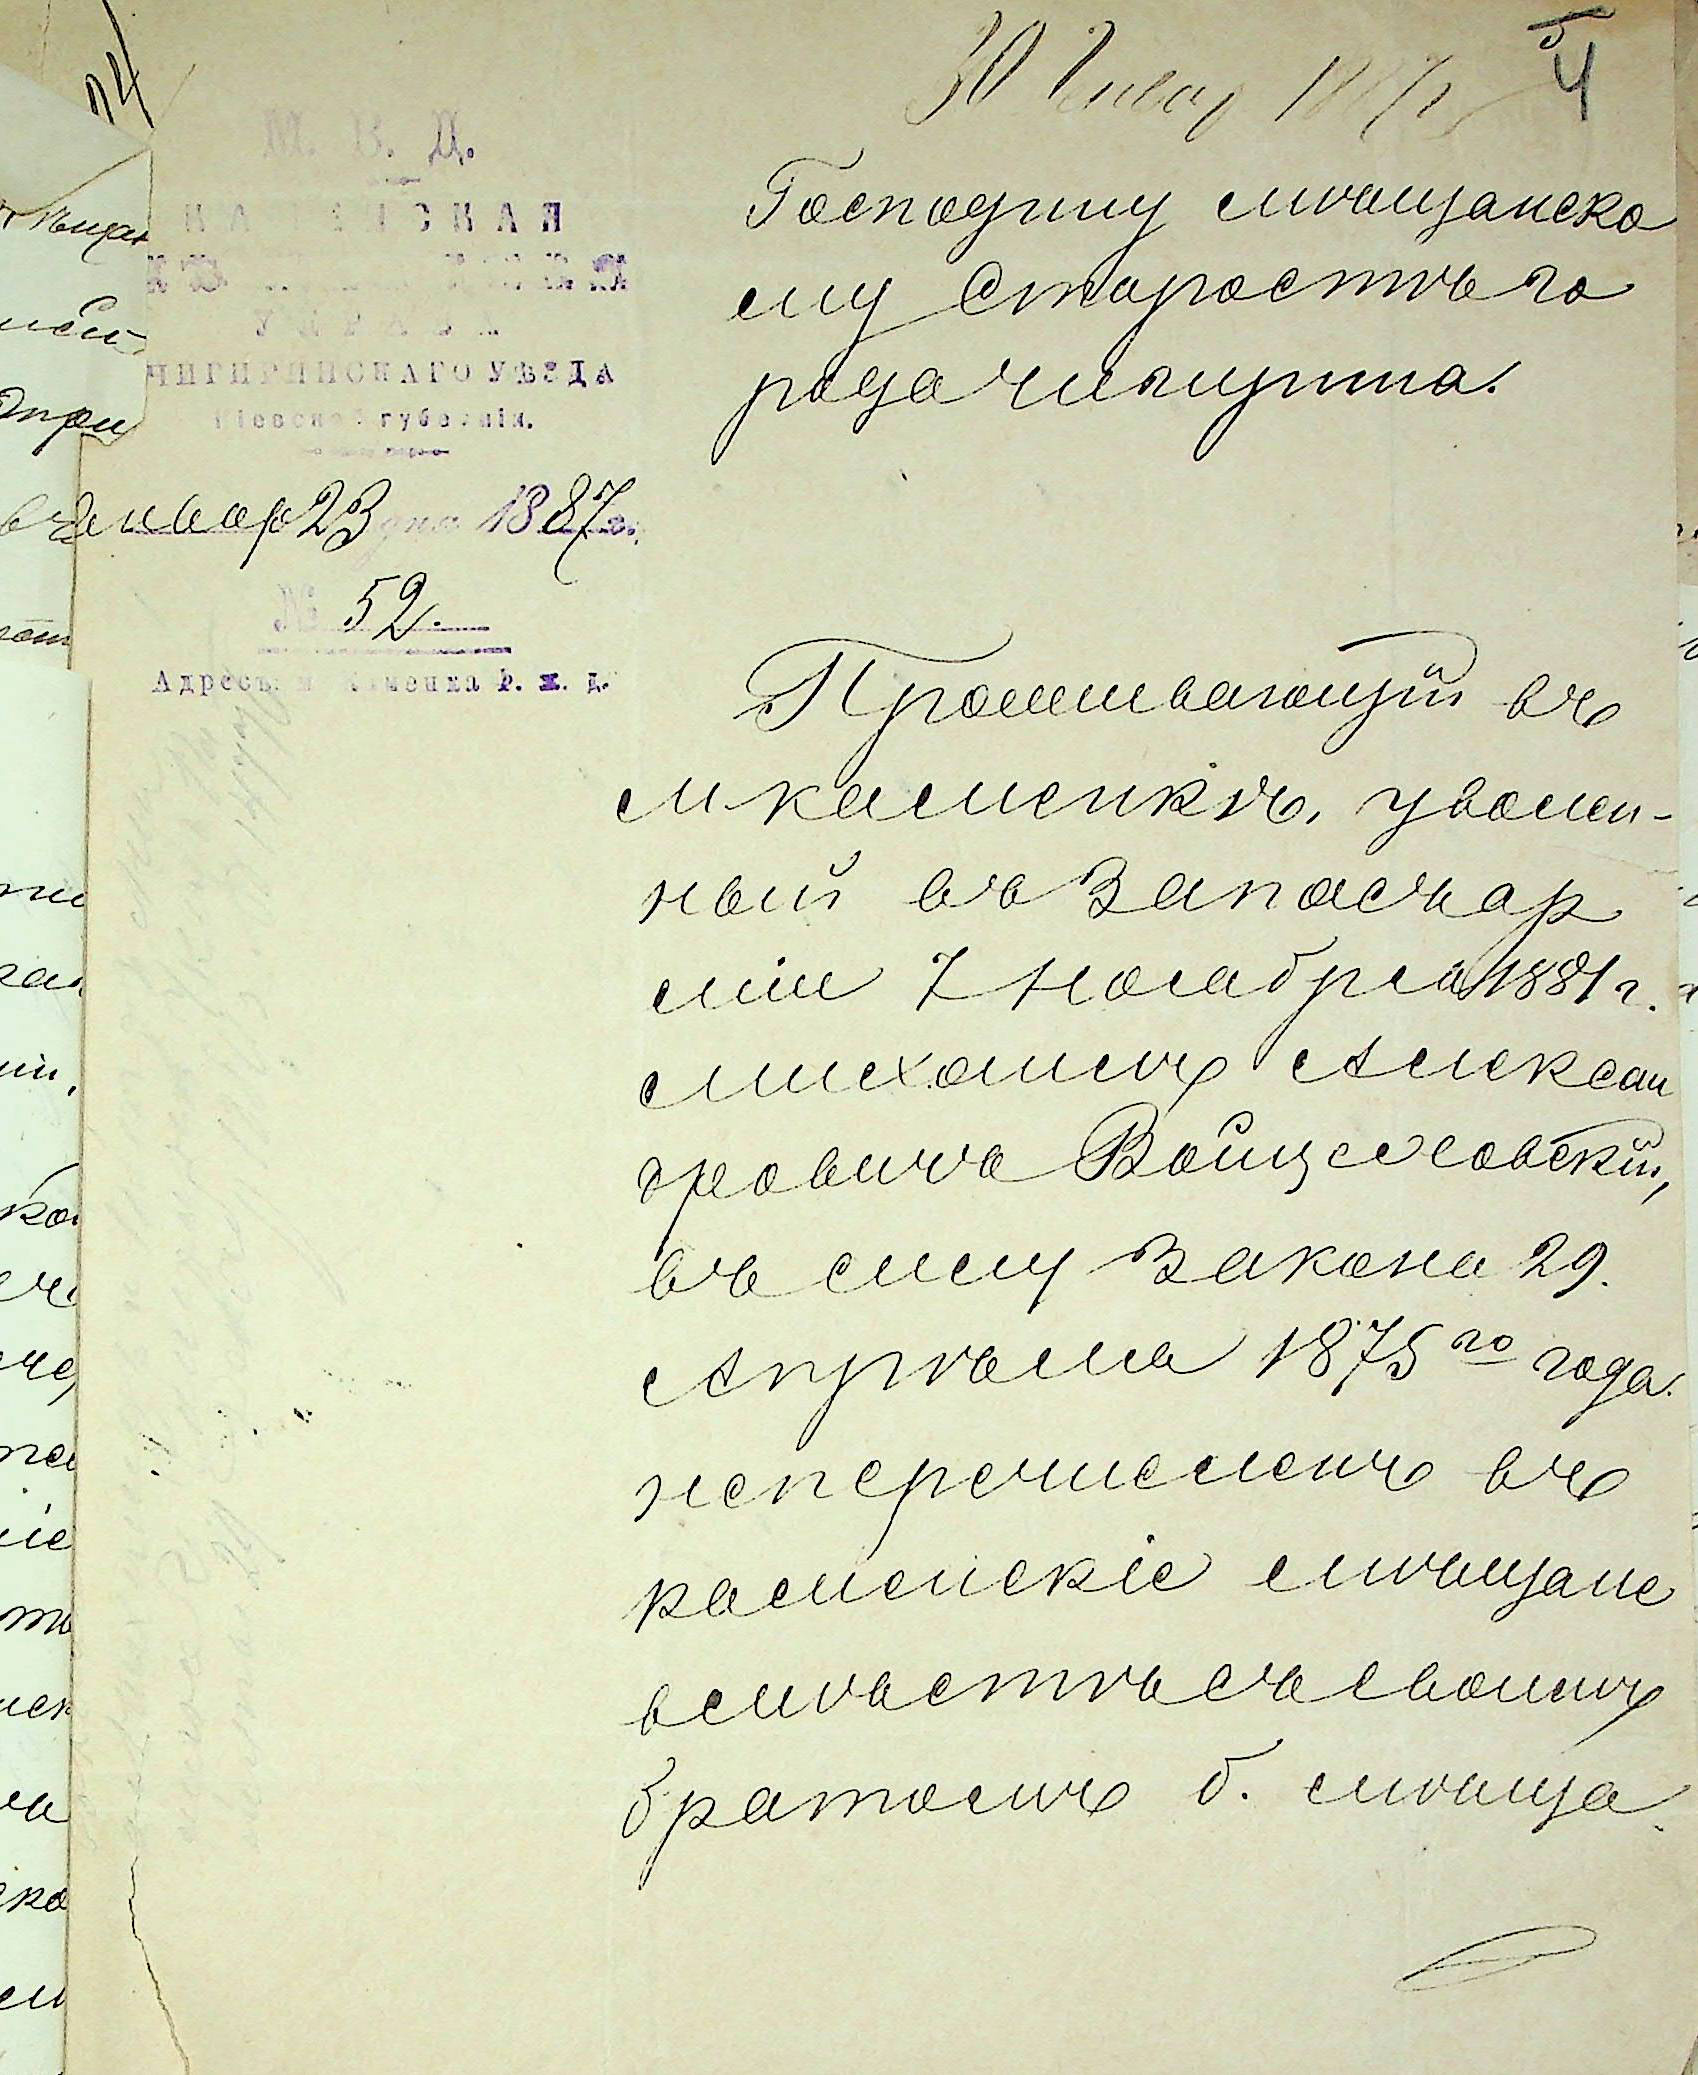 30 Январ 1887 г.
4
М. В. Д.
ЧИГИРИНСКАГО УѢЗДА
Кіевской губерніи.
Январ 23 дня 1887 г.
№ 52.
Адресъ: м. Каменка Ф. ж. д.
Господину мѣщанско
му Старостѣ го
рода чигирина.
Проживающій въ
м каменкѣ, уволен-
ный въ Запасъ ар
міи 7 Ноября 1881 г.
михаилъ Алексан
дровичъ Войцеховскій,
въ силу Закона 29.
Апрѣля 1875 го года.
неперечисленъ въ
каменскіе мѣщане
вмѣстѣ съ своимъ
братомъ б. мѣща.